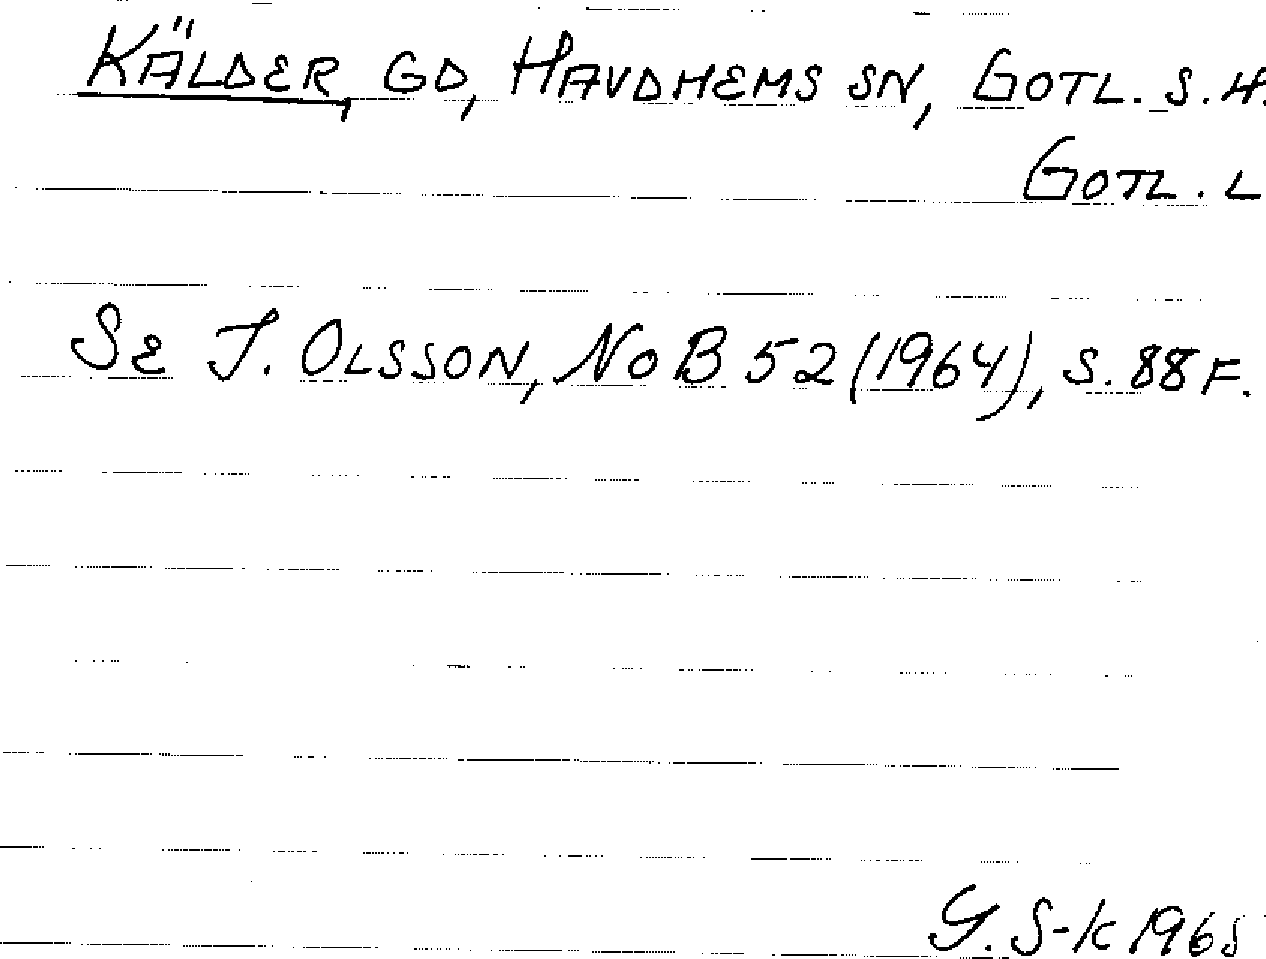 KÄLDER, GD, HAVDHEMS SN, GOTL. S. H.
GOTL. L
SE I. OLSSON, NoB 52 (1964), S. 88 F.
G. S-K 1965